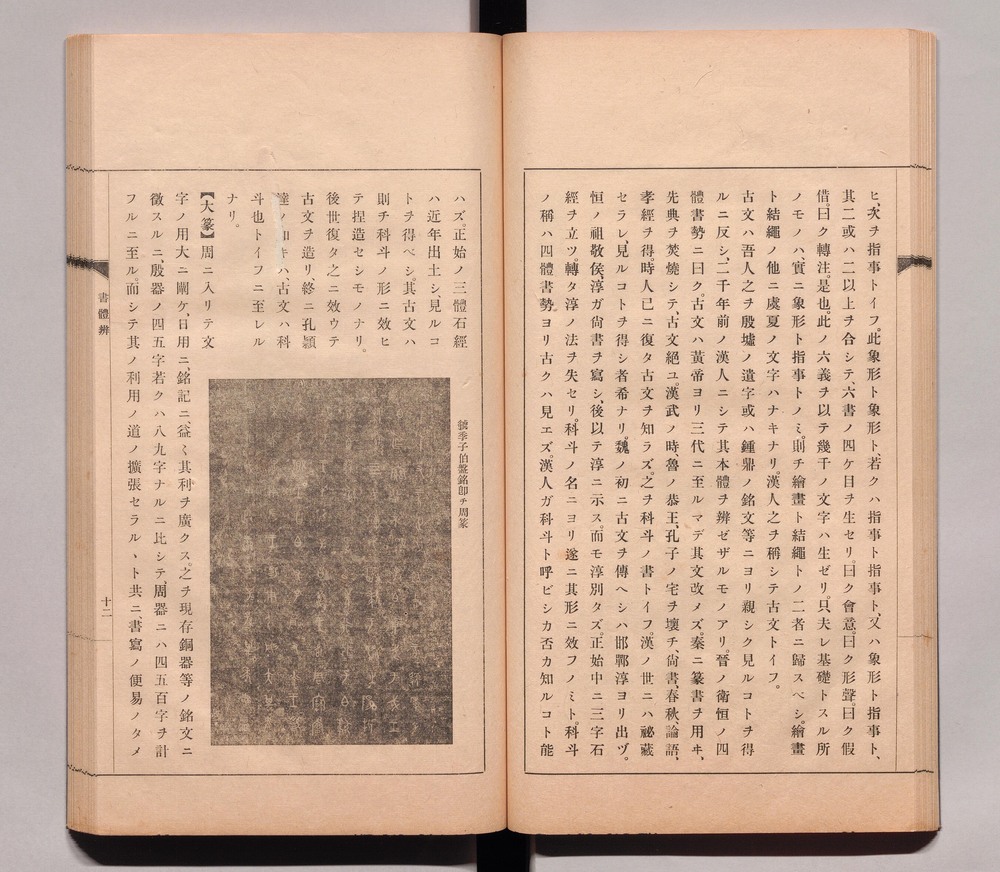 ヒ、次ヲ指事トイフ。此象形ト象形ト、若クハ指事ト指事ト、又ハ象形ト指事ト、
其二或ハ二以上ヲ合シテ、六書ノ四ケ目ヲ生セリ。曰ク會意。曰ク形聲。曰ク假
借。曰ク轉注。是也。此ノ六義ヲ以テ幾千ノ文字ハ生ゼリ。只夫レ基礎トスル所
ノモノハ、實ニ象形ト指事トノミ。則チ繪畫ト結繩トノ二者ニ歸スベシ。繪畫
ト結繩ノ他ニ虞夏ノ文字ハナキナリ。漢人之ヲ稱シテ古文トイフ。
古文ハ吾人之ヲ殷墟ノ遺字或ハ鍾鼎ノ銘文等ニヨリ親シク見ルコトヲ得
ルニ反シ、二千年前ノ漢人ニシテ其本體ヲ辨ゼザルモノアリ。晉ノ衛恒ノ四
體書勢ニ曰ク。古文ハ黃帝ヨリ三代ニ至ルマデ其文改メズ。秦ニ篆書ヲ用ヰ、
先典ヲ焚燒シテ、古文絕ユ。漢武ノ時、魯ノ恭王、孔子ノ宅ヲ壞チ、尙書、春秋、論語、
孝經ヲ得。時人已ニ復タ古文ヲ知ラズ。之ヲ科斗ノ書トイフ。漢ノ世ニハ祕藏
セラレ、見ルコトヲ得シ者希ナリ。魏ノ初ニ古文ヲ傳ヘシハ邯鄲淳ヨリ出ヅ。
恒ノ祖敬侯、淳ガ尙書ヲ寫シ、後以テ淳ニ示ス。而モ淳別タズ。正始中ニ三字石
經ヲ立ツ。轉タ淳ノ法ヲ失セリ。科斗ノ名ニヨリ遂ニ其形ニ效フノミト。科斗
ノ稱ハ四體書勢ヨリ古クハ見エズ。漢人ガ科斗ト呼ビシカ否カ知ルコト能
ハズ。正始ノ三體石經
ハ近年出土シ、見ルコ
トヲ得ベシ。其古文ハ
則チ科斗ノ形ニ效ヒ
テ捏造セシモノナリ。
後世復タ之ニ效ウテ
古文ヲ造リ終ニ孔穎
達ノ如キハ、古文ハ科
斗也トイフニ至レル
ナリ。
虢季子伯盤銘卽チ周篆
【大篆】周ニ入リテ文
字ノ用大ニ闢ケ、日用ニ、銘記ニ、益〻其利ヲ廣クス。之ヲ現存銅器等ノ銘文ニ
徵スルニ、殷器ノ四五字若クハ八九字ナルニ比シテ、周器ニハ四五百字ヲ計
フルニ至ル。而シテ其ノ利用ノ道ノ擴張セラルヽト共ニ、書寫ノ便易ノタメ
書體辨
十二